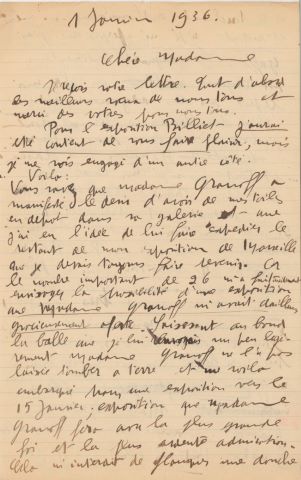 1 Janvier 1936.
Chère Madame
Je reçois votre lettre. Tout d'abord
les meilleurs vœux de nous tous et
merci des votres pour nous tous.
Pour l'exposition Billiet j'aurais
été content de vous faire plaisir, mais
je me vois engagé d'un autre côté.
Voilà:
Vous savez que madame Granoff a
manifesté le désir d'avoir de mes toiles
en dépôt dans sa galerie et que
j'ai eu l'idée de lui faire expédier le
restant de mon exposition de Marseille
que je devais toujours faire revenir. Or
le nombre important de 26 m'a fait
envisager la possibilité d'une exposition
que Madame Granoff m'avait d'ailleurs
gracieusement offerte. Saisissant au bond
la balle que je lui un peu légè-
rement Madame Granoff ne l'a pas
laissée tomber à terre et me voilà
embarqué dans une exposition vers le
15 Janvier, exposition que Madame
Granoff fera avec la plus grande
foi et la plus ardente admiration.
Cela m'interdit de flanquer une douche